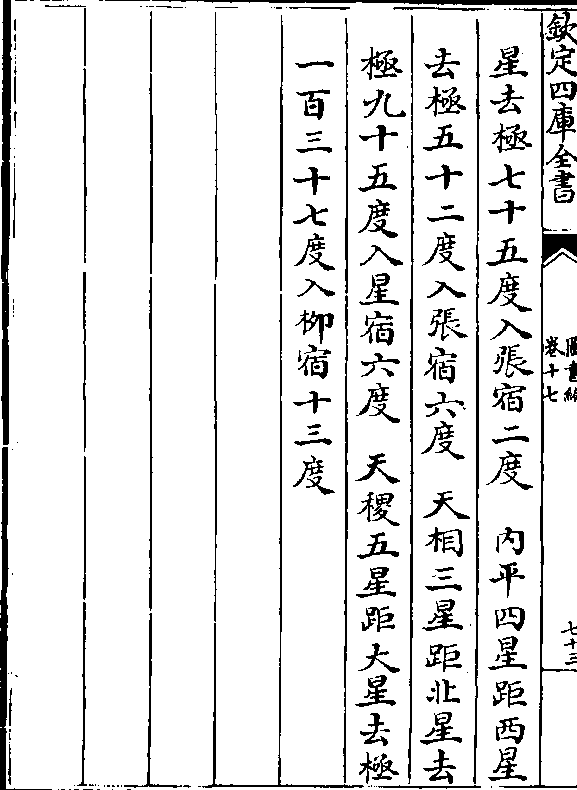 欽定四庫全書
卷十七
七十三
星去極七十五度入張宿二度　內平四星距西星
去極五十二度入張宿六度　天相三星距北星去
極九十五度入星宿六度　天稷五星距大星去極
一百三十七度入柳宿十三度